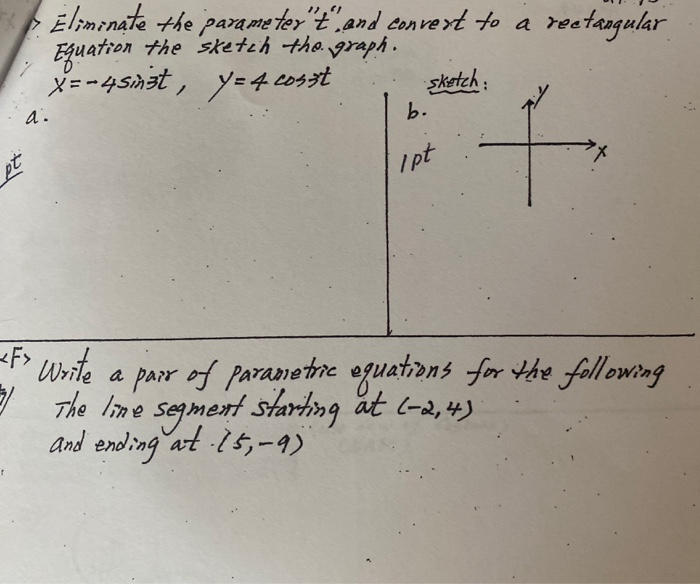 > Eliminate the parameter "t", and convert to a rectangular
Equation the sketch the graph.
x = -4 sin3t, y = 4 cos3t
a.
pt
sketch:
b.
1pt
y
x
<F> Write a pair of parametric equations for the following
The line segment starting at (-2,4)
and ending at (5,-9)